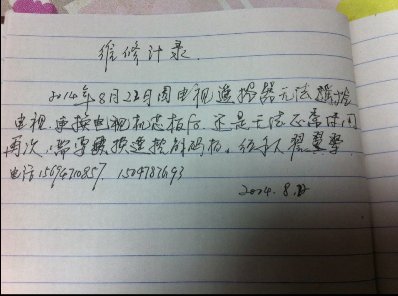 维修计录.
2014年8月22日因电视遥控器无法遥控
电视.更换电视机芯板后.还是无法正常使用
再次.需要更换遥控解码板.经手人
电话15694710857. 15047837693
2014.8.22